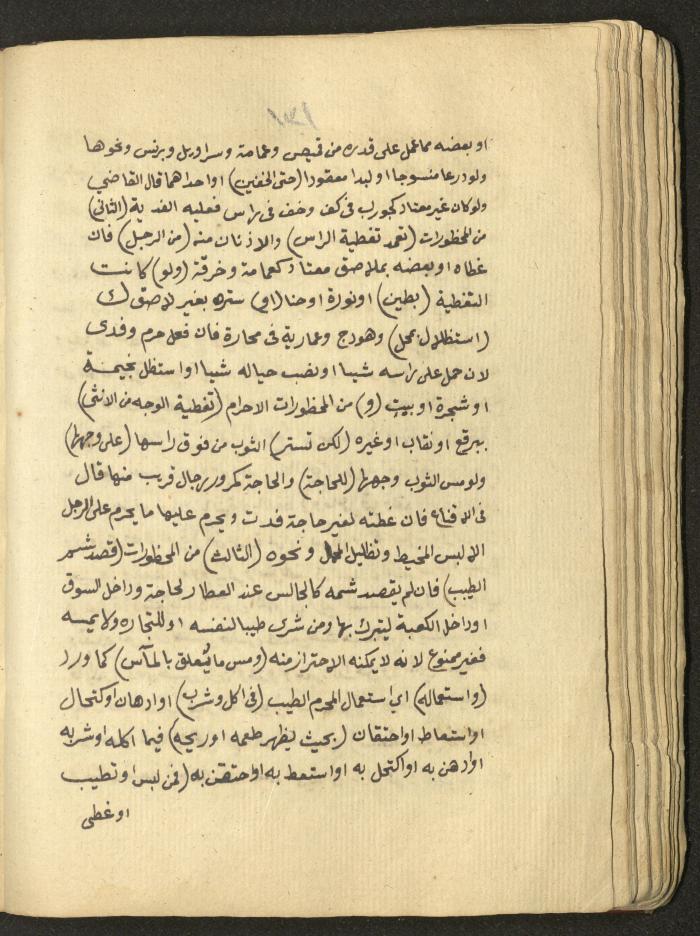 ١٣١
او بعضه مما عمل على قدره من قميص وعمامة وسراويل وبرنس ونحوها
ولو درعا منسوجا او لبدا معقودا (حتى الخفين) او احداهما قال القاضي
ولو كان غير معتاد كجورب في كف وخف في راس فعليه الفدية (الثاني)
من المحظورات (تعمد تغطية الراس) والاذنان منه (من الرجل) فان
غطاه او بعضه بملاصق معتاد كعمامة وخرقة (ولو) كانت
التغطية (بطين) او نورة او حنا (او) ستره بغير لاصق ك
(استظلال بمحمل) وهودج وعمارية في محارة فان فعل حرم وفدى
لان حمل على راسه شيا او نصب حياله شيا او استظل بخيمة
او شجرة او بيت (و) من المحظورات الاحرام (تغطية الوجه من الانثى)
ببرقع او نقاب او غيره (لكن تستر) الثوب من فوق راسها (على وجهها)
ولو مس الثوب وجهها (للحاجة) والحاجة كمرور رجال قريب منها قال
في الاقناع فان غطته لغير حاجة فدت ويحرم عليها ما يحرم على الرجل
الا لبس المخيط وتظليل المحمل ونحوه (الثالث) من المحظورات (قصد شم
الطيب) فان لم يقصد شمه كالجالس عند العطار لحاجة وداخل السوق
او داخل الكعبة ليتبرك بها ومن شرى طيبا لنفسه او للتجاره ولا يمسه
فغير ممنوع لانه لا يمكنه الاحتراز منه (ومس ما يُعلق بالماس) كما ورد
(واستعماله) اي استعمال المحرم الطيب (في اكل وشرب) او ادهان او كتحال
او استعاط او احتقان (بحيث يظهر طعمه او ريحه) فيما اكله او شربه
او ادهن به او اكتحل به او استعط به او احتقن به (فمن لبس او تطيب
او غطى